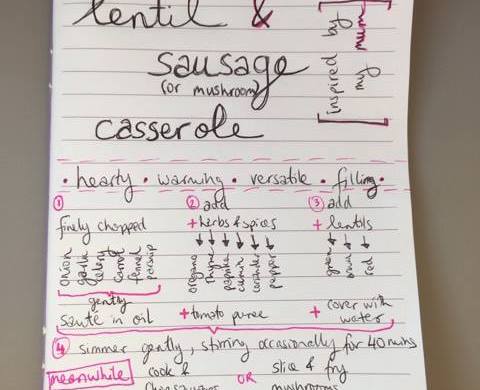 lentil &
sausage
(or mushroom)
casserole
[inspired by
my mum]
• hearty • warming • versatile • filling •
① finely chopped
onion
garlic
celery
carrot
fennel
parsnip
gently
sauté in oil
② add
+ herbs & spices
oregano
thyme
paprika
cumin
coriander
pepper
+ tomato puree
③ add
+ lentils
green
brown
red
+ cover with
water
④ simmer gently, stirring occasionally for 40 mins
meanwhile
cook &
OR
slice & fry
mushrooms